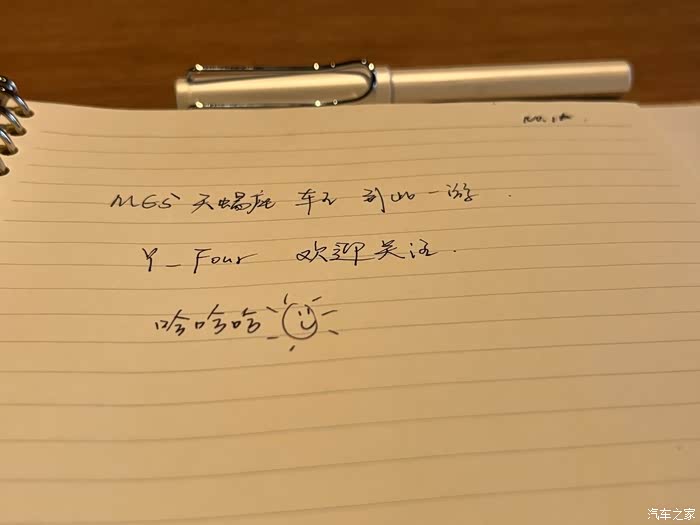 MG5 天蝎座 车元 到此一游.
Y_Four 欢迎关注.
哈哈哈
汽车之家